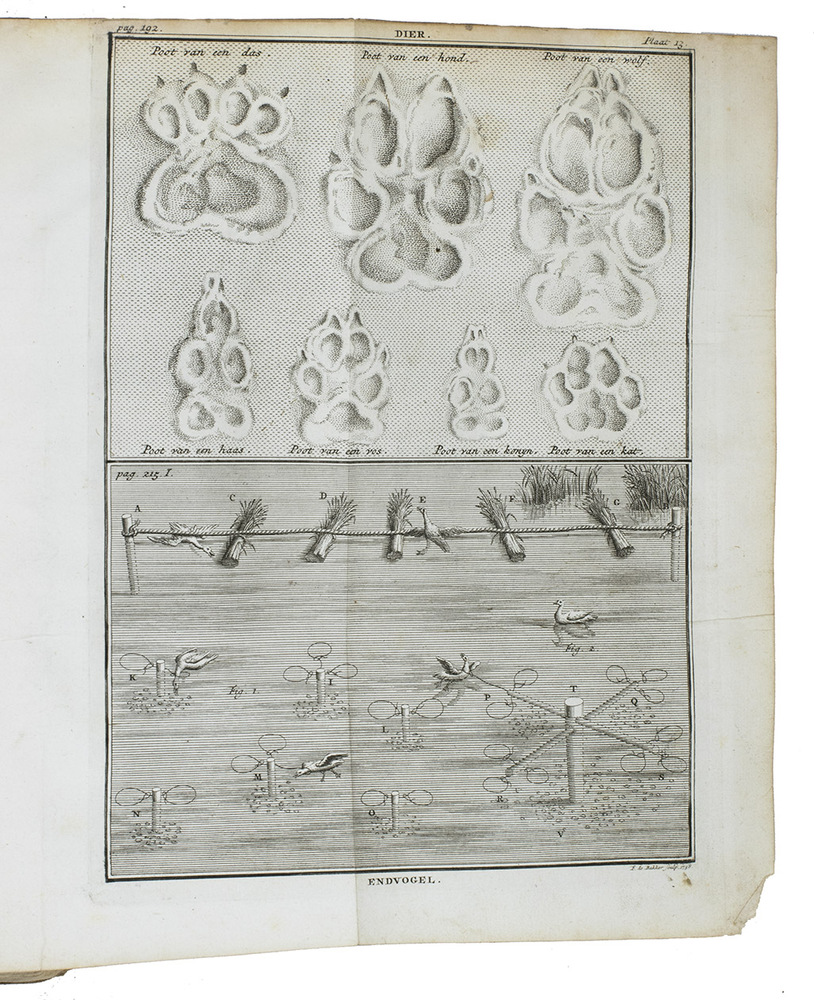 pag. 192.
DIER.
Plaat 13
Poot van een das.
Poot van een hond.
Poot van een wolf.
Poot van een haas.
Poot van een vos
Poot van een konyn.
Poot van een kat.
pag. 215 I.
A
C
D
E
F
G
Fig. 2.
K
I
Fig. 1.
P
T
Q
L
M
S
N
O
R
V
ENDVOGEL.